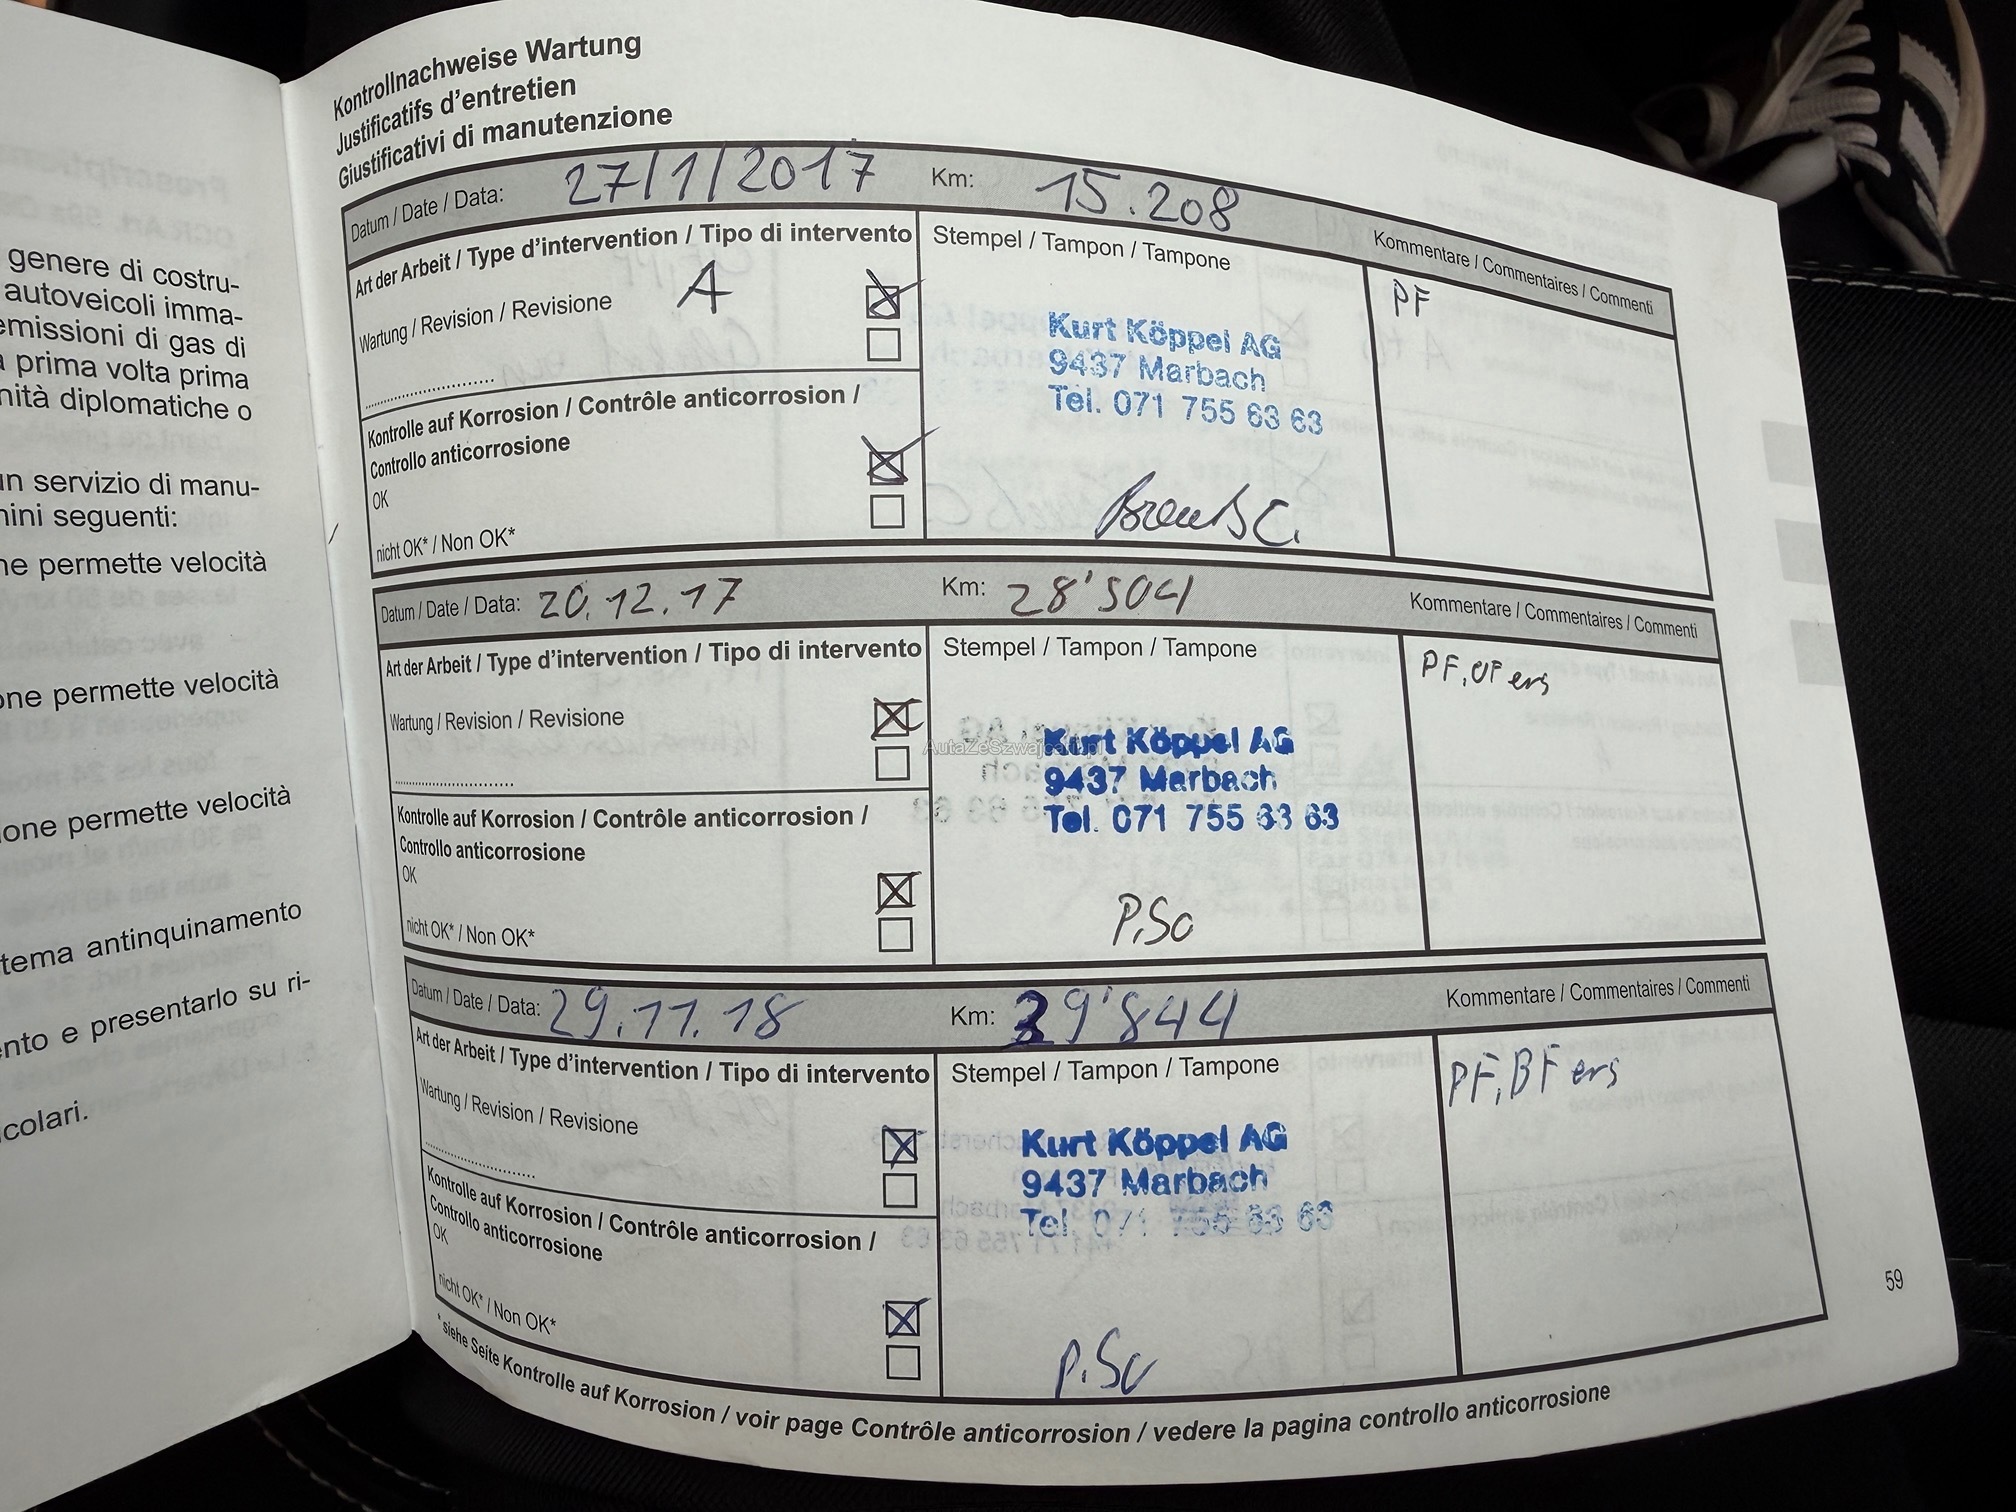 genere di costru-
autoveicoli imma-
emissioni di gas di
a prima volta prima
nità diplomatiche o
un servizio di manu-
nini seguenti:
ne permette velocità
one permette velocità
ione permette velocità
tema antinquinamento
ento e presentarlo su ri-
icolari.
Kontrollnachweise Wartung
Justificatifs d'entretien
Giustificativi di manutenzione
Datum / Date / Data: 27/1/2017 Km: 15.208 Kommentare / Commentaires / Commenti
Art der Arbeit / Type d'intervention / Tipo di intervento
Wartung / Revision / Revisione A
Stempel / Tampon / Tampone
PF
Kurt Köppel AG
9437 Marbach
Tel. 071 755 63 63
Kontrolle auf Korrosion / Contrôle anticorrosion /
Controllo anticorrosione
OK
nicht OK* / Non OK*
Datum / Date / Data: 20.12.17 Km: 28'504 Kommentare / Commentaires / Commenti
Art der Arbeit / Type d'intervention / Tipo di intervento
Wartung / Revision / Revisione
Stempel / Tampon / Tampone
PF, OF ers
AutaZeSzwajcarii.pl
Kurt Köppel AG
9437 Marbach
Tel. 071 755 63 63
P.Sc
Kontrolle auf Korrosion / Contrôle anticorrosion /
Controllo anticorrosione
OK
nicht OK* / Non OK*
Datum / Date / Data: 29.11.18 Km: 39'844 Kommentare / Commentaires / Commenti
Art der Arbeit / Type d'intervention / Tipo di intervento
Wartung / Revision / Revisione
Stempel / Tampon / Tampone
PF, BF ers
Kurt Köppel AG
9437 Marbach
Tel. 071 755 63 63
P.Sc
Kontrolle auf Korrosion / Contrôle anticorrosion /
Controllo anticorrosione
OK
nicht OK* / Non OK*
* siehe Seite Kontrolle auf Korrosion / voir page Contrôle anticorrosion / vedere la pagina controllo anticorrosione
59